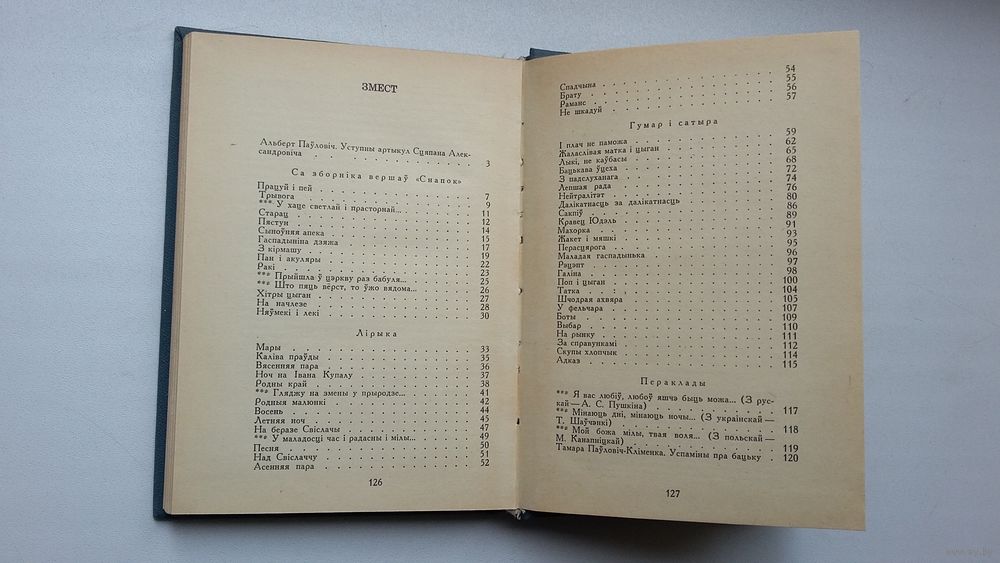 ЗМЕСТ
Альберт Паўловіч. Уступны артыкул Сцяпана Алек-
сандровіча . . . . . . . . . . 3
Са зборніка вершаў «Снапок»
Працуй і пей . . . . . . . . . . 7
Трывога . . . . . . . . . . 9
*** У хаце светлай і прасторнай... . . . . . . 11
Старац . . . . . . . . . . 12
Пястун . . . . . . . . . . 14
Сыноўняя апека . . . . . . . . . . 15
Гаспадыніна дзяжа . . . . . . . . . . 17
З кірмашу . . . . . . . . . . 19
Пан і акуляры . . . . . . . . . . 22
Ракі . . . . . . . . . . 23
*** Прыйшла ў цэркву раз бабуля... . . . . . . 25
*** Што пяць вёрст, то ўжо вядома... . . . . . . 26
Хітры цыган . . . . . . . . . . 27
На начлезе . . . . . . . . . . 28
Няўмекі і лекі . . . . . . . . . . 30
Лірыка
Мары . . . . . . . . . . 33
Каліва праўды . . . . . . . . . . 35
Вясенняя пара . . . . . . . . . . 36
Ноч на Івана Купалу . . . . . . . . . . 37
Родны край . . . . . . . . . . 38
*** Гляджу на змены у прыродзе... . . . . . . 41
Родныя малюнкі . . . . . . . . . . 42
Восень . . . . . . . . . . 44
Летняя ноч . . . . . . . . . . 45
На беразе Свіслачы . . . . . . . . . . 47
*** У маладосці час і радасны і мілы... . . . . . . 49
Песня . . . . . . . . . . 50
Над Свіслаччу . . . . . . . . . . 51
Асенняя пара . . . . . . . . . . 52
126
Спадчына . . . . . . . . . . 54
Брату . . . . . . . . . . 55
Раманс . . . . . . . . . . 56
Не шкадуй . . . . . . . . . . 57
Гумар і сатыра
І плач не паможа . . . . . . . . . . 59
Жаласлівая матка і цыган . . . . . . . . . . 62
Лыкі, не каўбасы . . . . . . . . . . 65
Бацькава ўцеха . . . . . . . . . . 68
З падслуханага . . . . . . . . . . 72
Лепшая рада . . . . . . . . . . 74
Нейтралітэт . . . . . . . . . . 76
Далікатнасць за далікатнасць . . . . . . . . . . 80
Сакпіў . . . . . . . . . . 86
Кравец Юдэль . . . . . . . . . . 89
Махорка . . . . . . . . . . 91
Жакет і мяшкі . . . . . . . . . . 93
Перасцярога . . . . . . . . . . 95
Маладая гаспадынька . . . . . . . . . . 96
Рэцэпт . . . . . . . . . . 97
Галіна . . . . . . . . . . 98
Поп і цыган . . . . . . . . . . 100
Татка . . . . . . . . . . 104
Шчодрая ахвяра . . . . . . . . . . 105
У фельчара . . . . . . . . . . 107
Боты . . . . . . . . . . 109
Выбар . . . . . . . . . . 110
На рынку . . . . . . . . . . 111
За справункамі . . . . . . . . . . 112
Скупы хлопчык . . . . . . . . . . 114
Адказ . . . . . . . . . . 115
Пераклады
*** Я вас любіў, любоў яшчэ быць можа... (З рус-
кай — А. С. Пушкіна) . . . . . . . . . . 117
*** Мінаюць дні, мінаюць ночы... (З украінскай —
Т. Шаўчэнкі) . . . . . . . . . . 118
*** Мой божа мілы, твая воля... (З польскай —
М. Канапніцкай) . . . . . . . . . . 119
Тамара Паўловіч-Кліменка. Успаміны пра бацьку . 120
127
www.ay.by